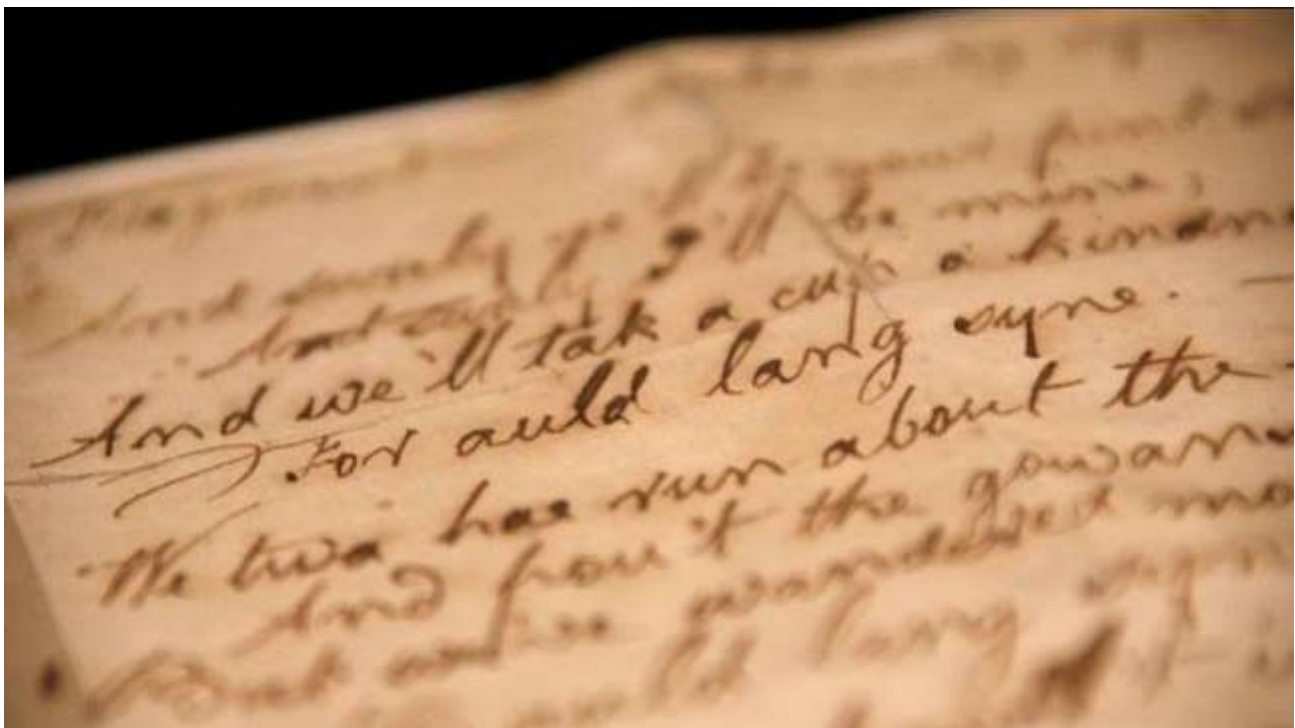 And surely ye'll be your pint
And surely I'll be mine;
And we'll tak a cup o kindn
For auld lang syne.
We twa hae run about the
And pou't the gowans
But we've wandered mo
auld lang syn